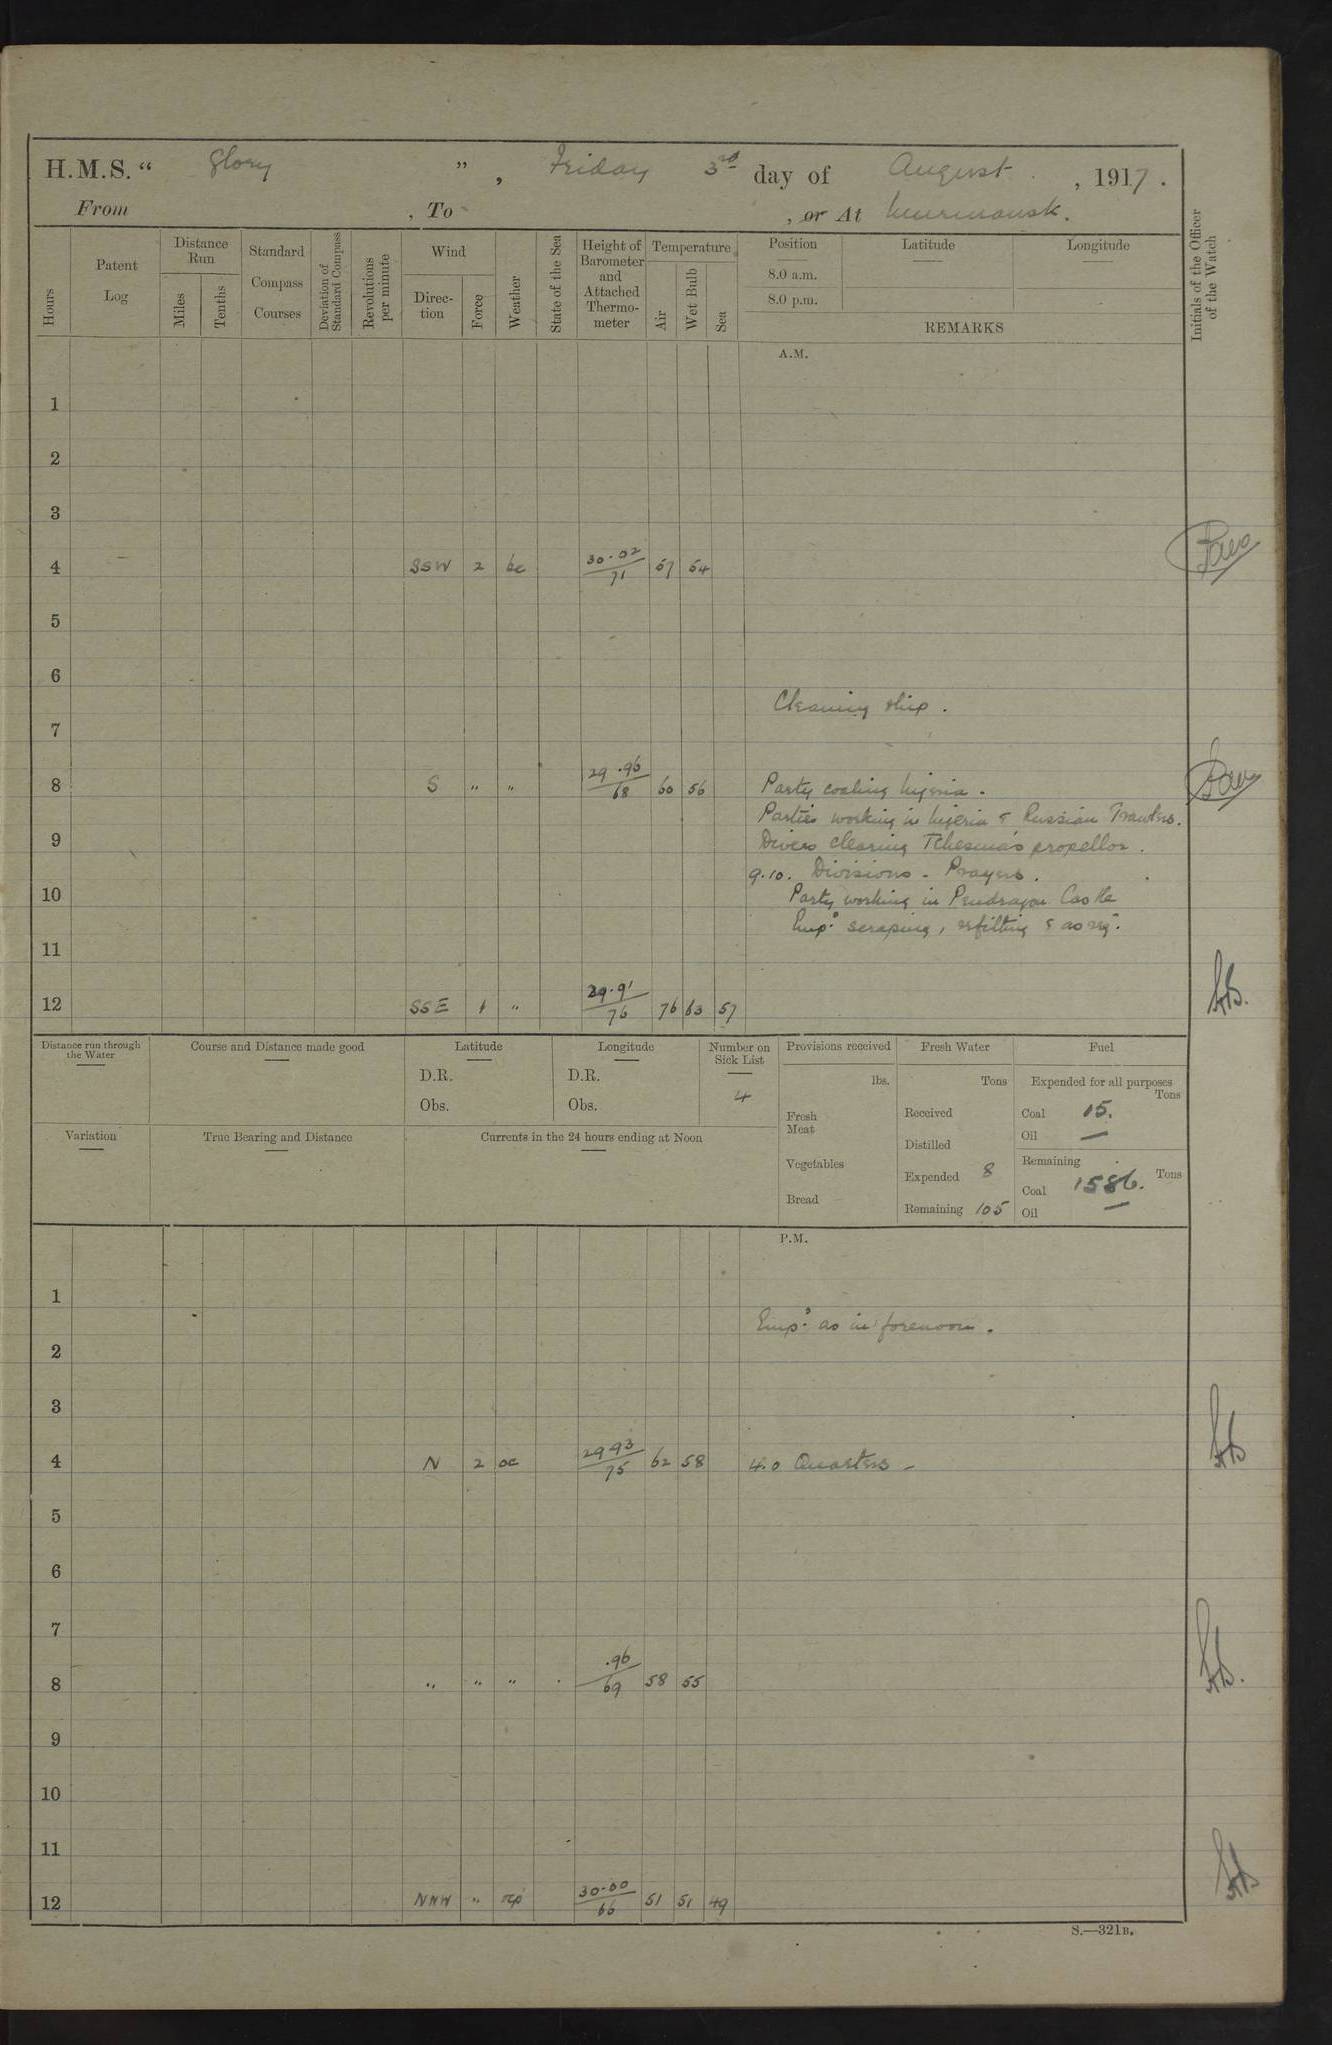 H.M.S. " Glory " , Friday 3rd day of August , 1917 .
From , To , or At Murmansk.
Hours
Patent Log
Distance Run
Miles
Tenths
Standard Compass Courses
Deviation of Standard Compass
Revolutions per minute
Wind
Direc-tion
Force
Weather
State of the Sea
Height of Barometer and Attached Thermo-meter
Temperature
Air
Wet Bulb
Sea
Position
8.0 a.m.
8.0 p.m.
Latitude
Longitude
REMARKS
Initials of the Officer of the Watch
A.M.
1
2
3
4 SSW 2 bc 30.02/71 57 54
5
6
Cleaning ship .
7
8 S " " 29.96/68 60 56 Party coaling Nigeria .
Parties working in Nigeria & Russian Trawlers.
9 Divers clearing Tchesma's propellor .
9.10. Divisions - Prayers .
10 Party working in Pendragon Castle
Empd. scraping, refitting & as req.
11
12 SSE 1 " 29.91/76 76 63 57
Distance run through the Water
Course and Distance made good
Latitude
D.R.
Obs.
Longitude
D.R.
Obs.
Number on Sick List
4
Provisions received
lbs.
Fresh Meat
Vegetables
Bread
Fresh Water
Tons
Received
Distilled
Expended 8
Remaining 105
Fuel
Expended for all purposes
Tons
Coal 15.
Oil —
Remaining
Coal 1586. Tons
Oil —
Variation
True Bearing and Distance
Currents in the 24 hours ending at Noon
P.M.
1
Empd. as in forenoon .
2
3
4 N 2 oc 29 93/75 62 58 4.0 Quarters -
5
6
7
8 " " " .96/69 58 55
9
10
11
12 NNW " 30.00/66 51 51 49
S.—321B.